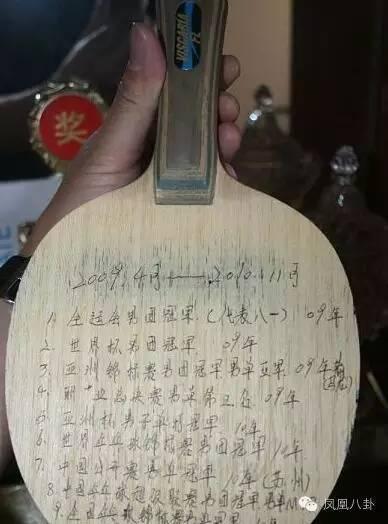 VISCARIA
FL
奖
2009.4月——2010.11月
1. 全运会男团冠军.(代表八一) 09年
2. 世界杯男团冠军 09年
3. 亚洲锦标赛男团冠军男单亚军.09年
4. 总决赛男单 09年
5. 亚洲杯男子单打冠军 10年
6. 世界乒乓球锦标赛男团冠军 10年
7. 中国公开赛男单冠军 10年(苏州)
8. 中国乒乓球超级联赛男团冠军
9. 全国乒乓球锦标赛男团冠军
凤凰八卦